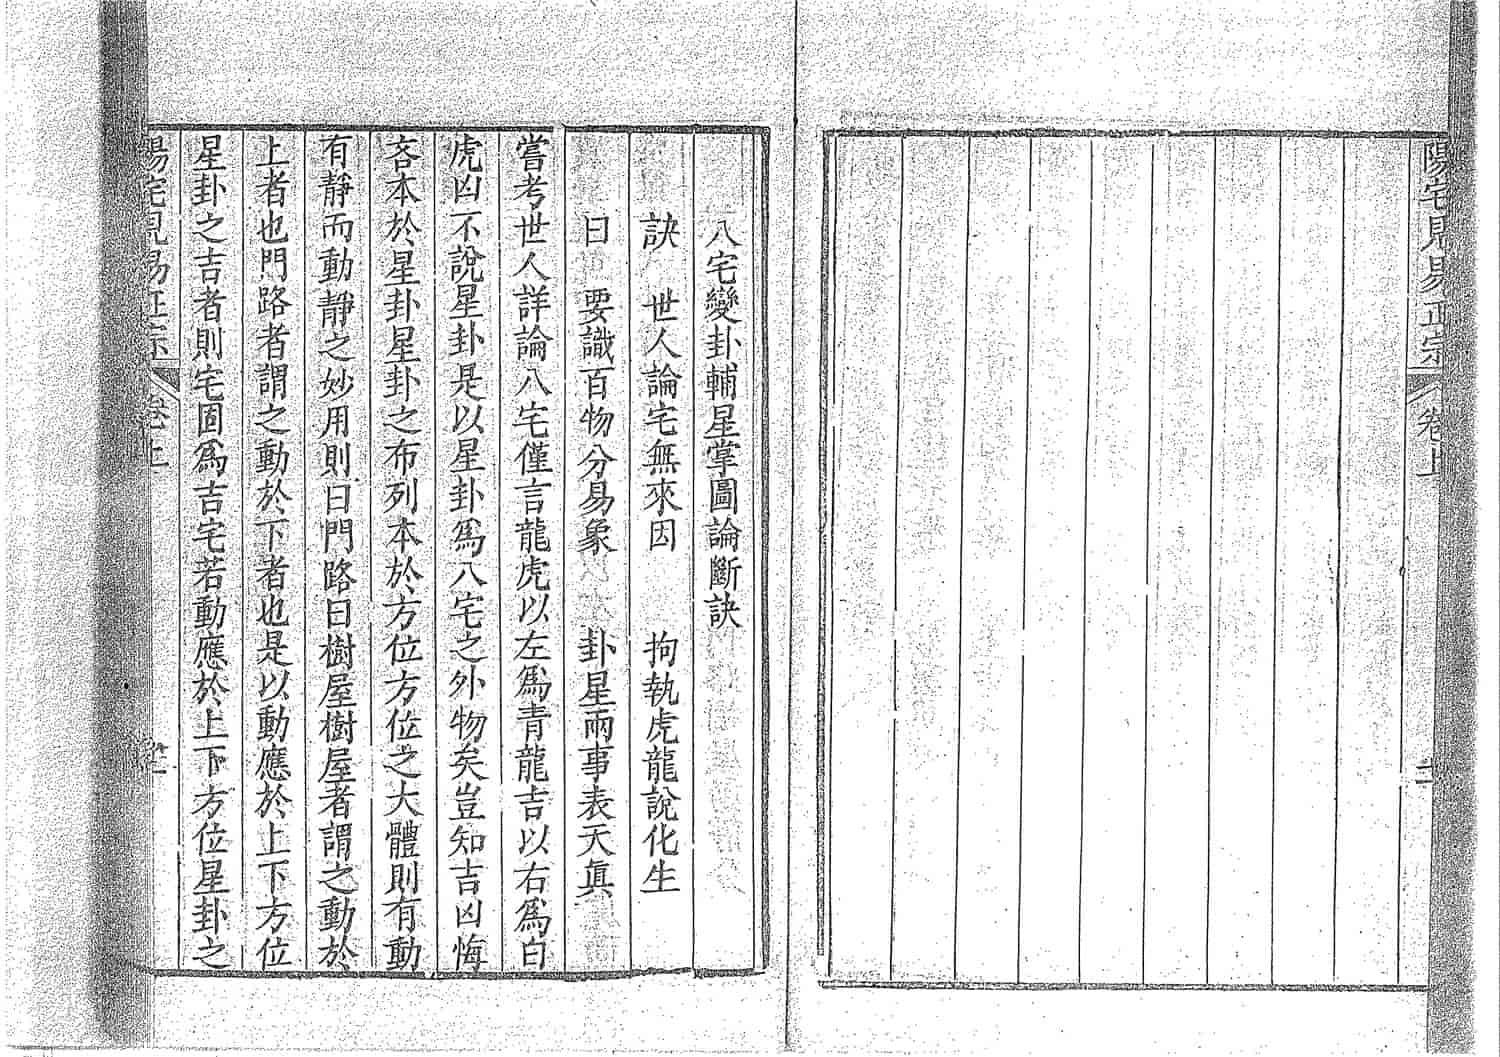 陽宅見易正宗
卷上
八宅變卦輔星掌圖論斷訣
訣 世人論宅無來因 拘執虎龍說化生
曰 要識百物分易象 卦星兩事表天眞
嘗考世人詳論八宅僅言龍虎以左爲青龍吉以右爲白
虎凶不說星卦是以星卦爲八宅之外物矣豈知吉凶悔
吝本於星卦星卦之布列本於方位方位之大體則有動
有靜而動靜之妙用則曰門路曰樹屋樹屋者謂之動於
上者也門路者謂之動於下者也是以動應於上下方位
星卦之吉者則宅固爲吉宅若動應於上下方位星卦之
陽宅見易正宗
卷上